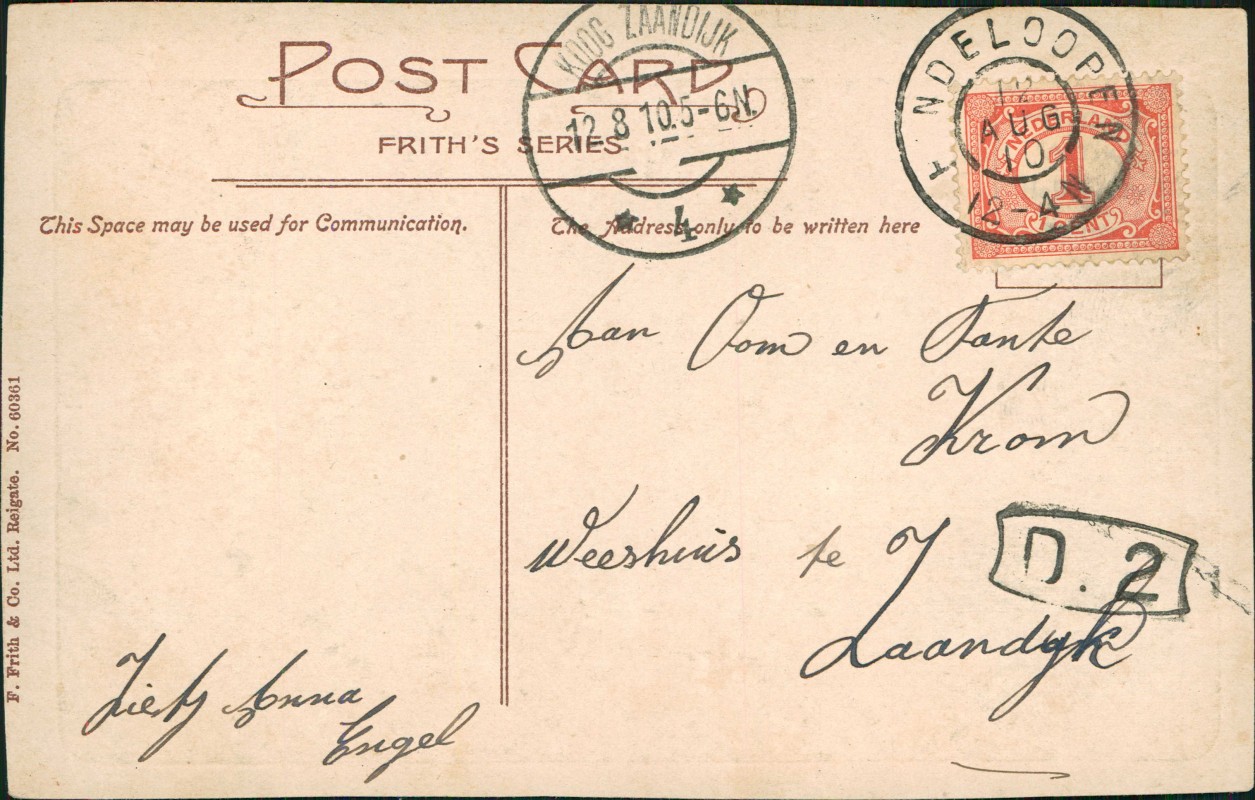 POST CARD
FRITH'S SERIES
This Space may be used for Communication.
The Address only to be written here
KOOG ZAANDIJK
12.8.10.5-6N.
4
HINDELOOPEN
12
AUG
10
12-4N
NEDERLAND
1
CENT
Aan Oom en Tante
Krom
Weeshuis te
Zaandyk
D. 2
Anna
Engel
F. Frith & Co. Ltd. Reigate. No. 60361